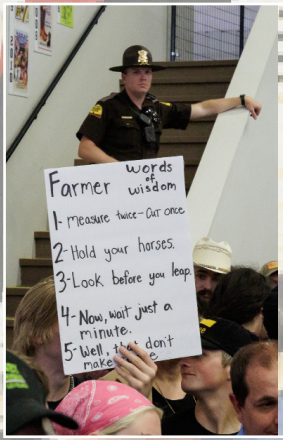 Farmer words
of
wisdom
1- measure twice - cut once
2- Hold your horses.
3- Look before you leap.
4- Now, wait just a
minute.
5- Well, don't
make